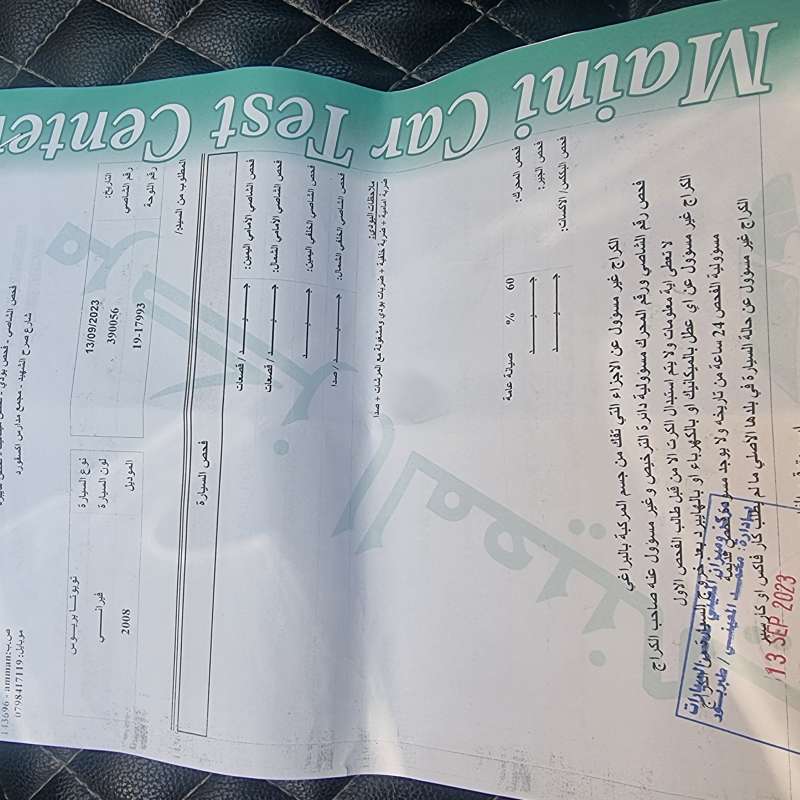 Maini Car Test Center
فحص الشاصي - فحص بودي
شارع صرح الشهيد - مجمع مدارس اكسفورد
ص.ب: amman - 113696
موبايل: 0798417119
التاريخ: 13/09/2023
رقم الشاصي 390056
رقم اللوحة 19-17993
نوع السيارة تويوتا بريوس
لون السيارة فيراني
الموديل 2008
المطلوب من السيد/
فحص السيارة
فحص الشاصي الامامي اليمين: جيد / قصعات
فحص الشاصي الامامي الشمال: جيد / قصعات
فحص الشاصي الخلفي اليمين: جيد
فحص الشاصي الخلفي الشمال: جيد / صدا
ملاحظات البودي:
ضربة امامية + ضربة خلفية + ضربات بودي ومشغولة مع الفرشات + صدا
فحص المحرك: 60 % صيانة عامة
فحص الجير: جيد
فحص البككس / الاكسات: جيد
الكراج غير مسؤول عن الاجزاء التي تفك من جسم المركبة بالبراغي
فحص رقم الشاصي ورقم المحرك مسؤولية دائرة الترخيص وغير مسؤول عنه صاحب الكراج
لا تعطى اية معلومات ولا يتم استبدال الكرت الا من قبل طالب الفحص الاول
الكراج غير مسؤول عن اي عطل بالميكانيك او بالكهرباء او بالهايبرد بعد خروج السيارة من الكراج
مسؤولية الفحص 24 ساعة من تاريخه ولا يوجد
الكراج غير مسؤول عن حالة السيارة في بلدها الاصلي ما لم يطلب كار فاكس او كارسير
بادارة: محمد المعيني / طبربور
13 SEP 2023